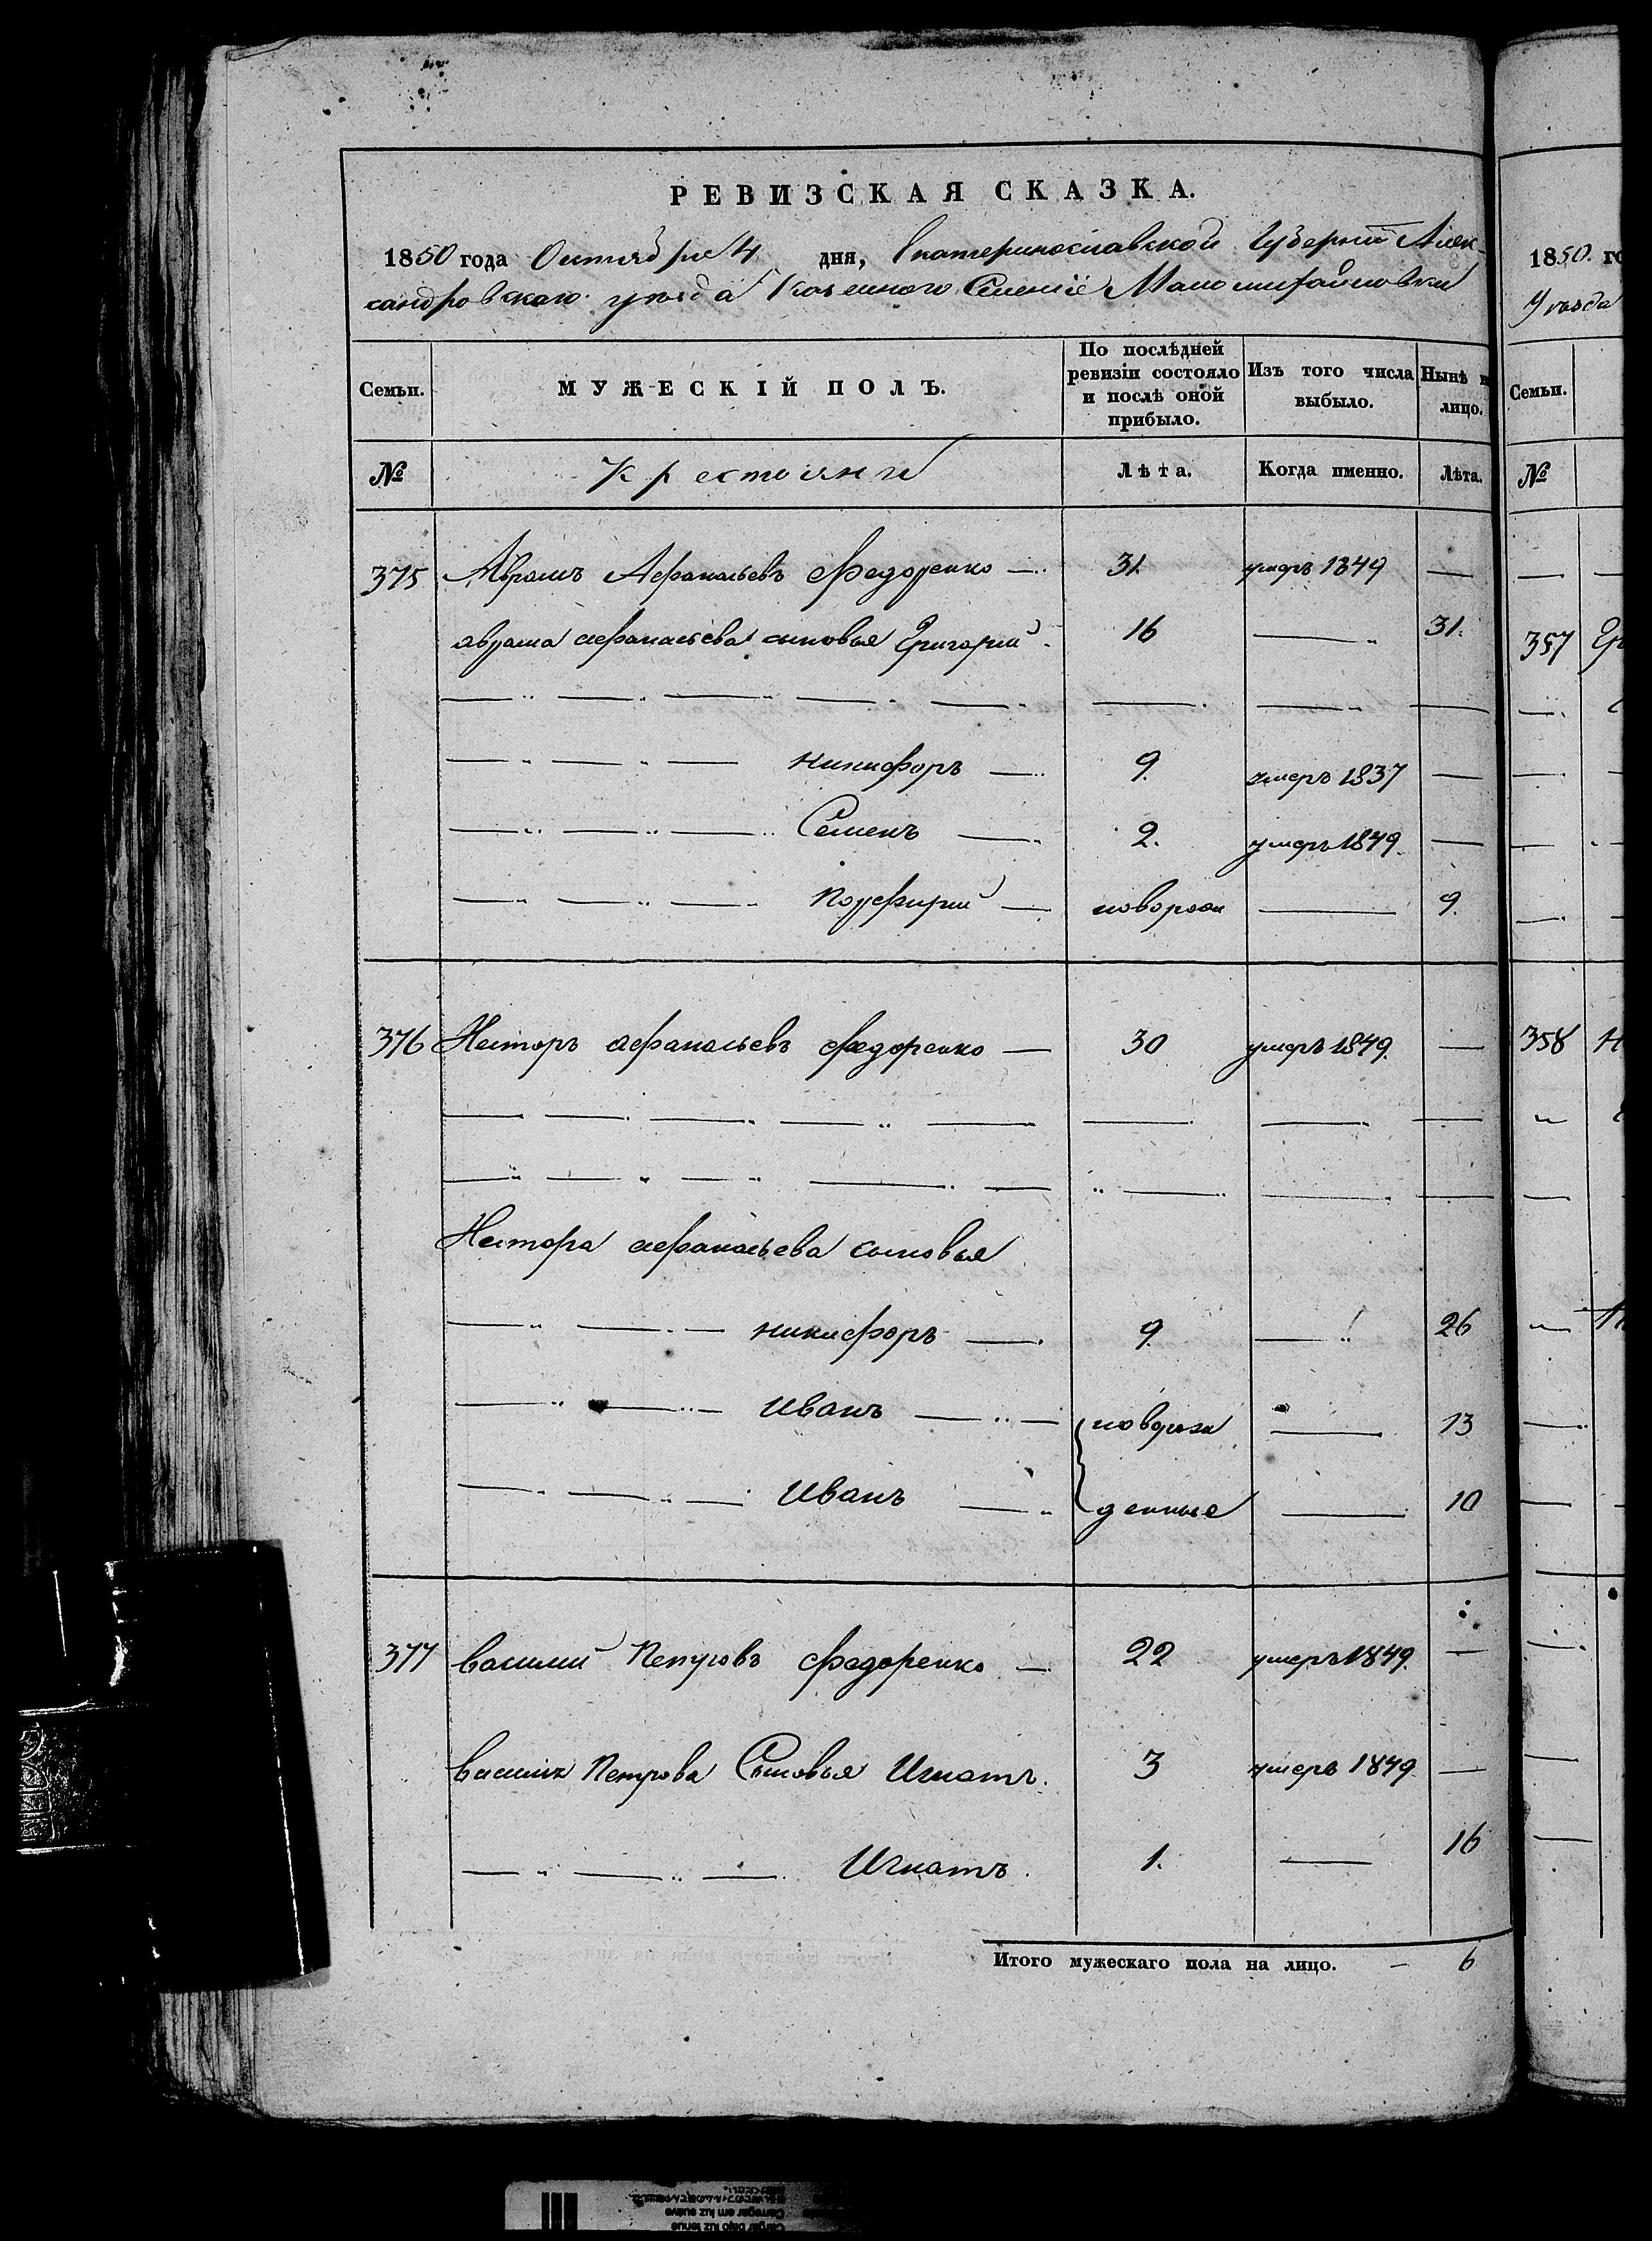 РЕВИЗСКАЯ СКАЗКА.
1850 года Октября 4 дня, Екатеринославской Губернии Алек-
сандровского уезда Казенного Селения Маломихайловки
Семьи. МУЖЕСКІЙ ПОЛЪ. По послѣдней ревизіи состояло и послѣ оной прибыло. Изъ того числа выбыло. Нынѣ н лицо.
№ Крестьяни Лѣта. Когда именно. Лѣта.
375 Аврамъ Афанасьевъ Федоренко — 31. умеръ 1849 —
аврама афанасьева сыновья Григорий 16 — 31.
никифоръ — 9. умеръ 1837 —
Семенъ — 2. умеръ 1849. —
Порфирий — новорож — 9.
376 Несторъ афанасьевъ федоренко — 30 умеръ 1849. —
Нестора афанасьева сыновья
никифоръ — 9. — 26
Иванъ — новорож — 13
Иванъ — денные — 10
377 василий Петровъ федоренко — 22 умеръ 1849. —
василия Петрова Сыновья Игнатъ. 3 умеръ 1849 —
Игнатъ. 1. — 16
Итого мужескаго пола на лицо. — 6
1850. го
Уезда
Семьи.
№
357 Гр
358 Н